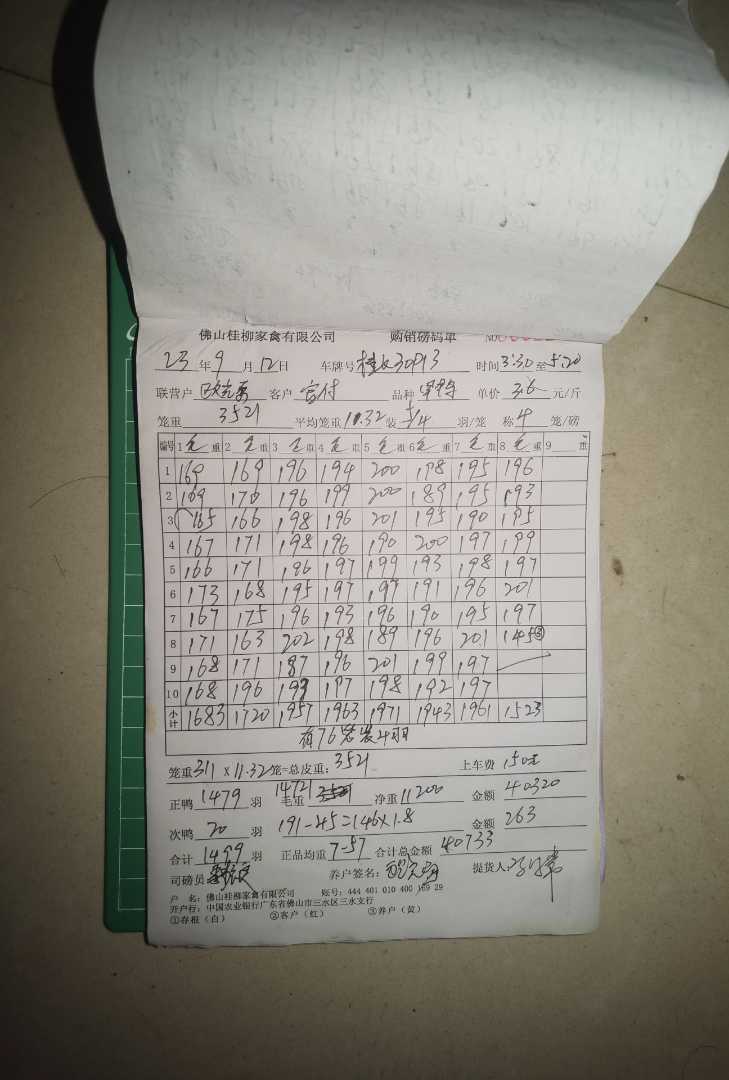 佛山桂柳家禽有限公司 购销磅码单 NO
23 年 9 月 12 日 车牌号 时间 3:30 至 5:20
联营户 客户 品种 单价 3.6 元/斤
笼重 3521 平均笼重 11.32 装 5/4 羽/笼 称 4 笼/磅
编号 1 毛 重 2 毛 重 3 毛 重 4 毛 重 5 毛 重 6 毛 重 7 毛 重 8 毛 重 9 重
1 169 169 196 194 200 198 195 196
2 169 170 196 199 200 189 195 193
3 165 166 198 196 201 195 190 195
4 167 171 198 196 190 200 197 199
5 166 171 196 197 199 193 198 197
6 173 168 195 197 197 191 196 201
7 167 175 196 193 196 190 195 197
8 171 163 202 198 189 196 201 145③
9 168 171 187 196 201 199 197
10 168 196 193 197 198 192 197
小计 1683 1720 1957 1963 1971 1943 1961 1523
有76笼装4羽
笼重 311 x 11.32 笼=总皮重: 3521 上车费 150元
正鸭 1479 羽 毛重 14721 净重 11200 金额 40320
次鸭 20 羽 191-45=146x1.8 金额 263
合计 1499 羽 正品均重 7-57 合计总金额 40733
司磅员 养户签名: 提货人:
户 名: 佛山桂柳家禽有限公司 账号: 444 401 010 400 169 29
开户行: 中国农业银行广东省佛山市三水区三水支行
①存根（白） ②客户（红） ③养户（黄）